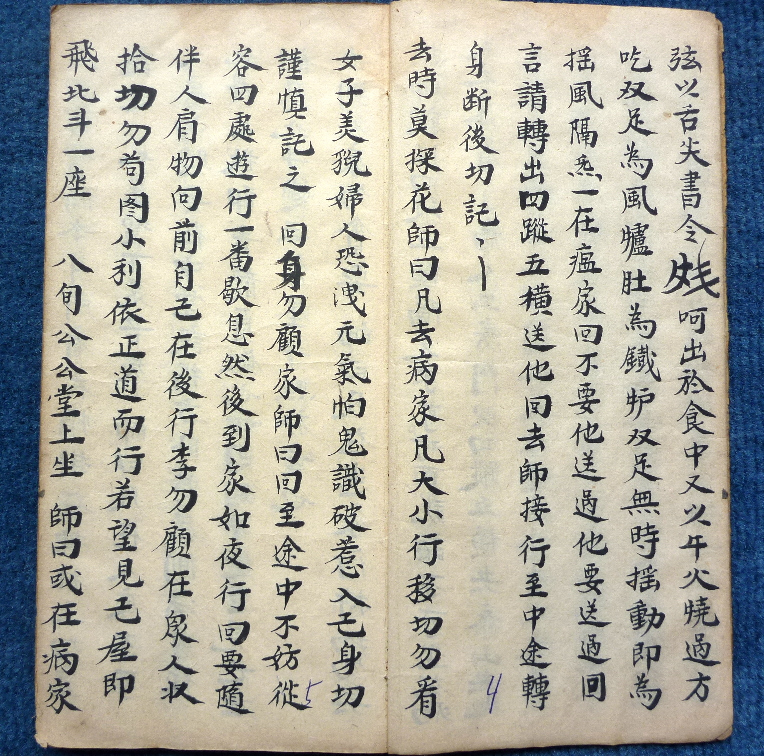 弦以舌尖書令 呵出於食中又以午火燒過方
吃双足為風驢肚為鐵炉双足無時揺動即為
揺風隔炁一在瘟家回不要他送過他要送過回
言請轉出四蹤五横送他回去師接行至中途轉
身断後切記
去時莫探花師曰凡去病家凡大小行移切勿看
4
女子美貌婦人恐洩元氣怕鬼識破惹入己身切
謹慎記之 回身勿顧家師曰回至途中不妨從
5
容四處遊行一番歇息然後到家如夜行回要隨
伴人肩物向前自己在後行李勿顧在衆人收
拾切勿苟图小利依正道而行若望見己屋即
飛北斗一座 八旬公公堂上坐 師曰或在病家